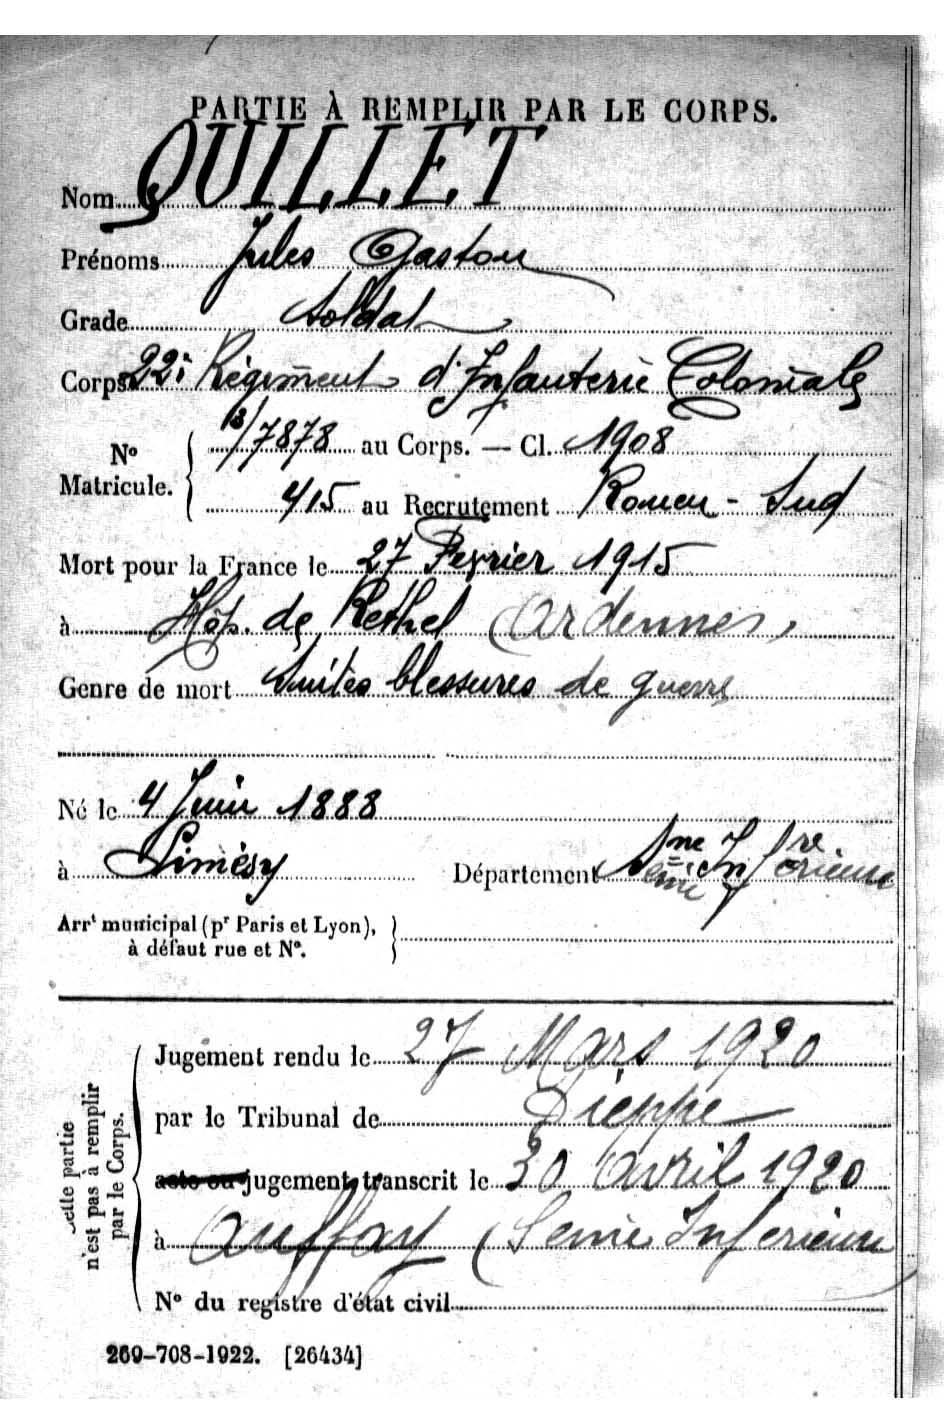 PARTIE À REMPLIR PAR LE CORPS.
Nom QUILLET
Prénoms Jules Gaston
Grade Soldat
Corps 22e Régiment d'Infanterie Coloniale
N° Matricule. 13/7878 au Corps. — Cl. 1908
415 au Recrutement Rouen - Sud
Mort pour la France le 27 Février 1915
à Hôp. de Rethel (Ardennes)
Genre de mort Suites blessures de guerre
Né le 4 Juin 1888
à Limésy Département Sne Infre Seine Inférieure
Arrt municipal (pr Paris et Lyon),
à défaut rue et N°.
Cette partie
n'est pas à remplir
par le Corps.
Jugement rendu le 27 Mars 1920
par le Tribunal de Dieppe
acte ou jugement transcrit le 30 avril 1920
à Auffay (Seine Inférieure
N° du registre d'état civil
269-708-1922. [26434]